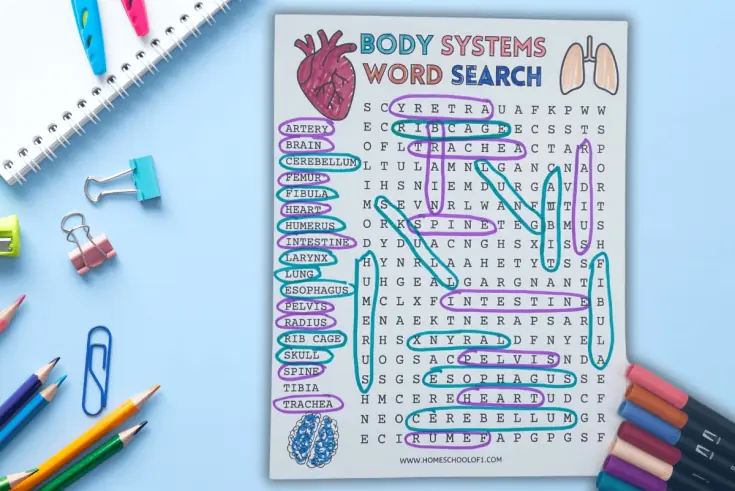 BODY SYSTEMS
WORD SEARCH
S C Y R E T R A U A F K P W W
E C R I B C A G E E C S S T S
O F L T R A C H E A C T A R P
L T U L A M N L G A N C N A O
I H S N I E M D U R G A V D R
M S E V N R L W A N F I T I T
O R K S P I N E T E G B M U H
D Y D U A C N G H S X I S S H
H Y N R L A A H E T Y T S S F
U H G E A L G A R G N A N T I
M C L X F I N T E S T I N E B
E N A E K T N E R A P S A R U
R H S X N Y R A L D F N Y E L
U O G S A C P E L V I S N D A
S S G S E S O P H A G U S S E
H M C E R E H E A R T U D C F
N E O C E R E B E L L U M G R
E C I R U M E F A P G P G S F
ARTERY
BRAIN
CEREBELLUM
FEMUR
FIBULA
HEART
HUMERUS
INTESTINE
LARYNX
LUNG
ESOPHAGUS
PELVIS
RADIUS
RIB CAGE
SKULL
SPINE
TIBIA
TRACHEA
WWW.HOMESCHOOLOF1.COM